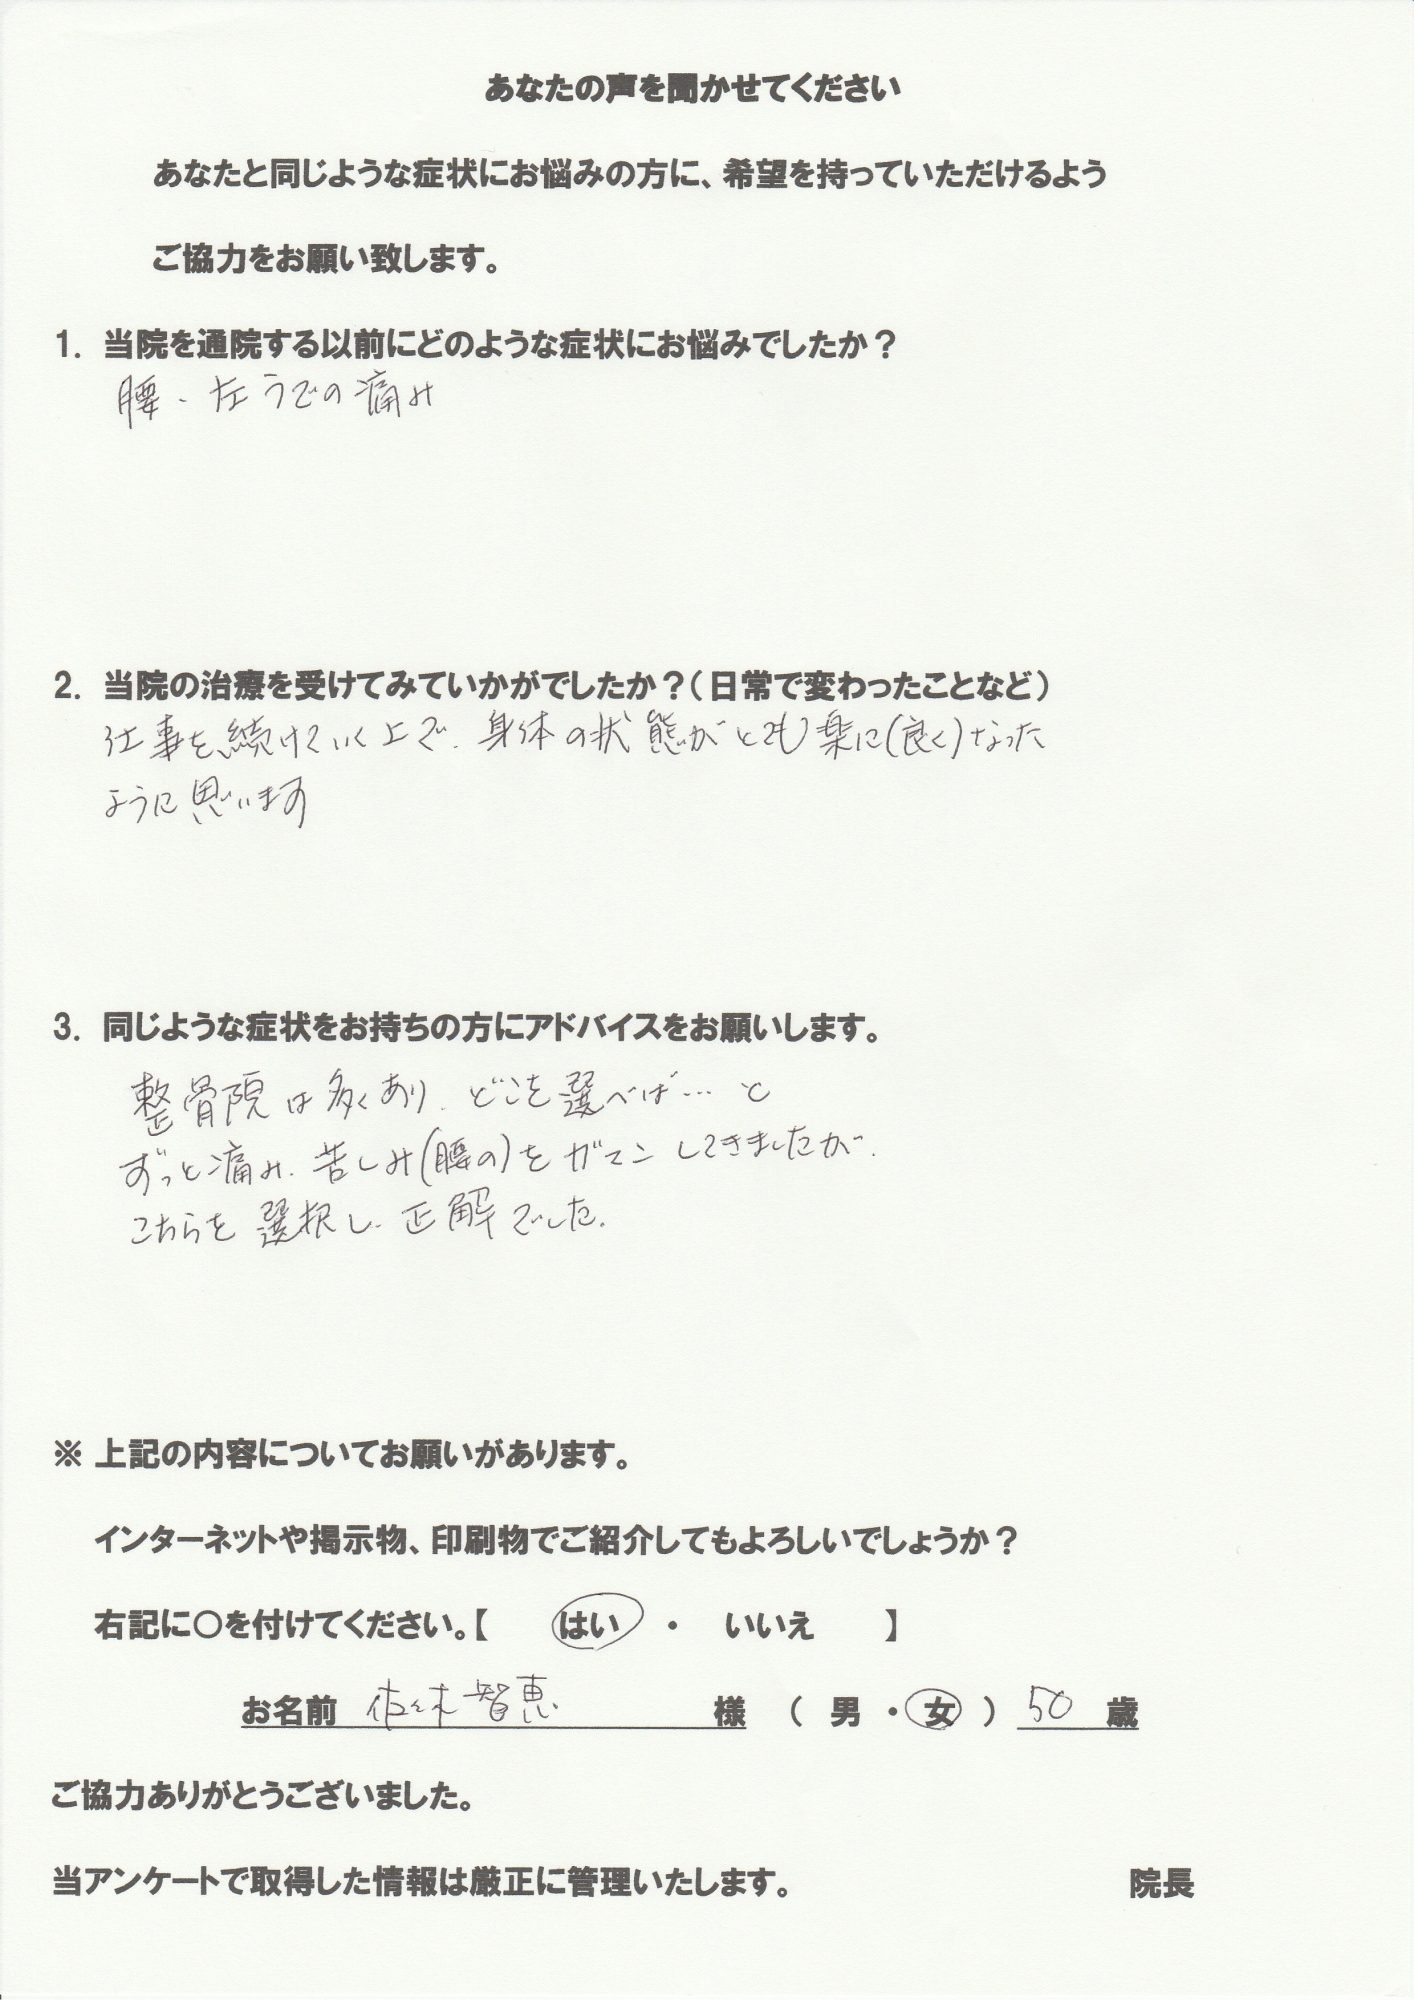 あなたの声を聞かせてください
あなたと同じような症状にお悩みの方に、希望を持っていただけるよう
ご協力をお願い致します。
1. 当院を通院する以前にどのような症状にお悩みでしたか？
腰、左うでの痛み
2. 当院の治療を受けてみていかがでしたか？（日常で変わったことなど）
仕事を続けていく上で、身体の状態がとても楽に（良く）なった
ように思います
3. 同じような症状をお持ちの方にアドバイスをお願いします。
整骨院は多くあり、どこを選べば…と
ずっと痛み、苦しみ（腰の）をガマンしてきましたが、
こちらを選択し、正解でした。
※ 上記の内容についてお願いがあります。
インターネットや掲示物、印刷物でご紹介してもよろしいでしょうか？
右記に〇を付けてください。【 はい ・ いいえ 】
お名前 佐々木智恵 様 （ 男 ・ 女 ） 50 歳
ご協力ありがとうございました。
当アンケートで取得した情報は厳正に管理いたします。 院長